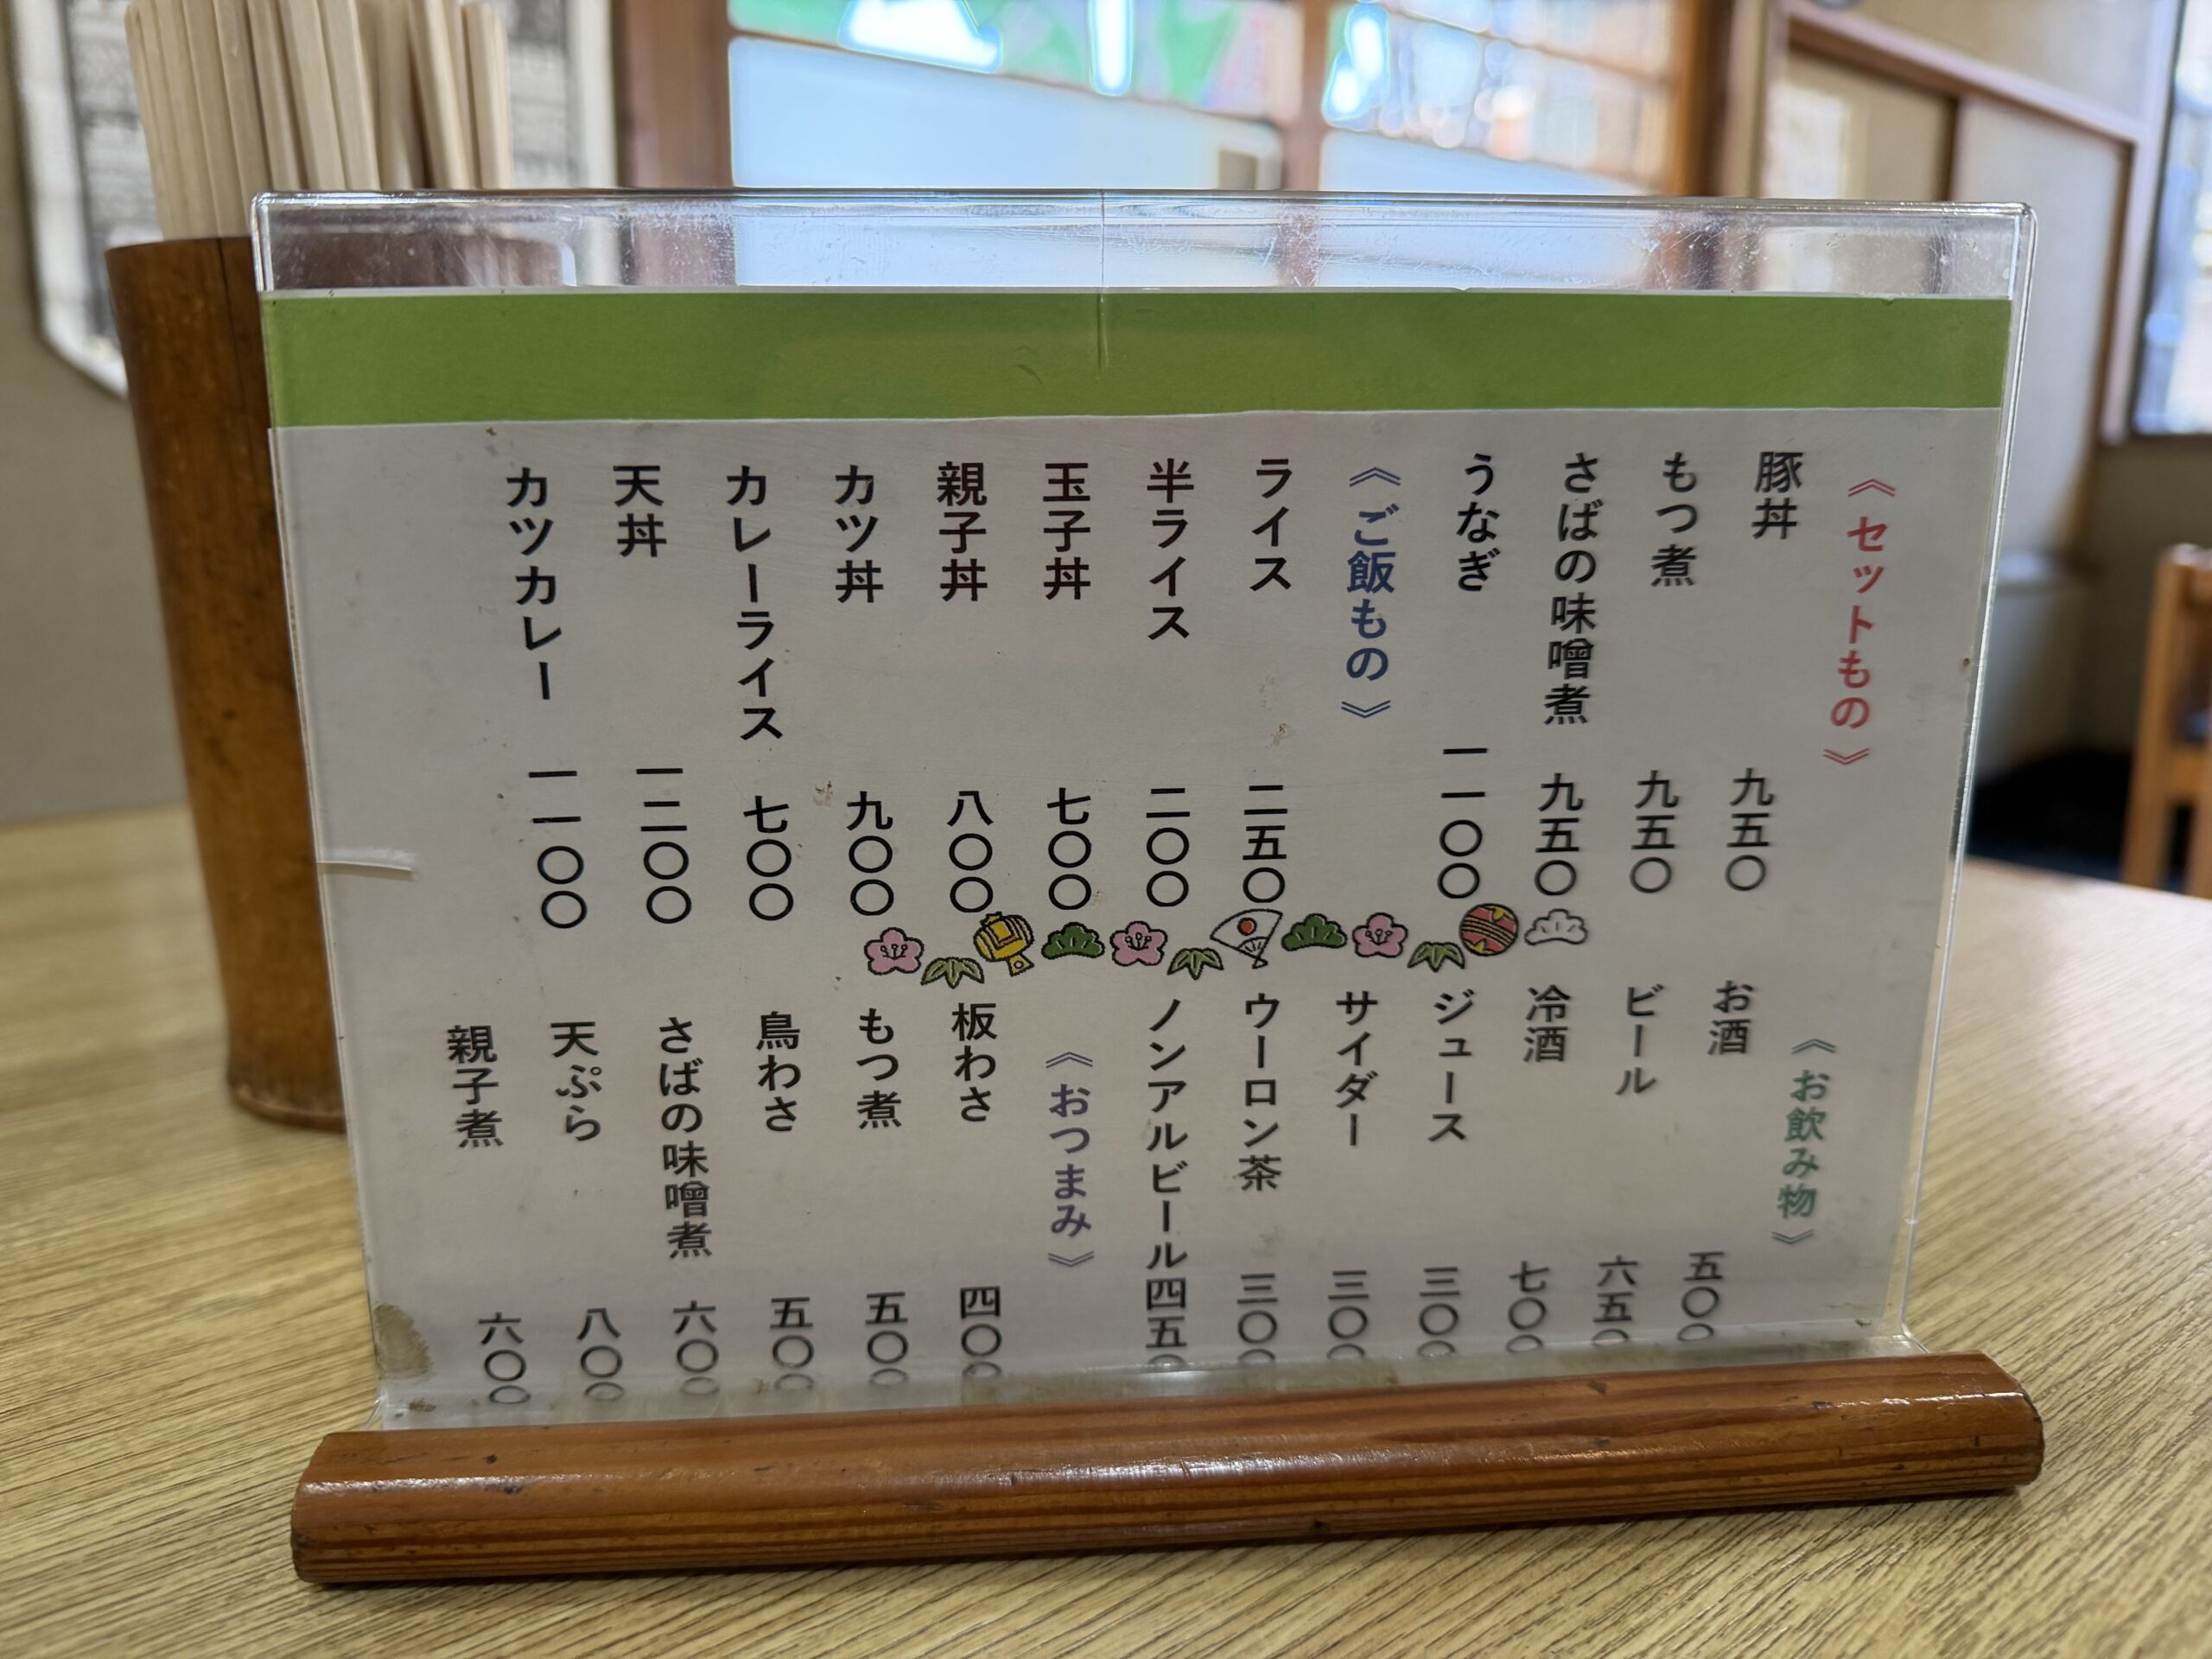 《セットもの》
豚丼 九五〇
もつ煮 九五〇
さばの味噌煮 九五〇
うなぎ 一一〇〇
《ご飯もの》
ライス 二五〇
半ライス 二〇〇
玉子丼 七〇〇
親子丼 八〇〇
カツ丼 九〇〇
カレーライス 七〇〇
天丼 一二〇〇
カツカレー 一一〇〇
《お飲み物》
お酒 五〇〇
ビール 六五〇
冷酒 七〇〇
ジュース 三〇〇
サイダー 三〇〇
ウーロン茶 三〇〇
ノンアルビール 四五〇
《おつまみ》
板わさ 四〇〇
もつ煮 五〇〇
鳥わさ 五〇〇
さばの味噌煮 六〇〇
天ぷら 八〇〇
親子煮 六〇〇